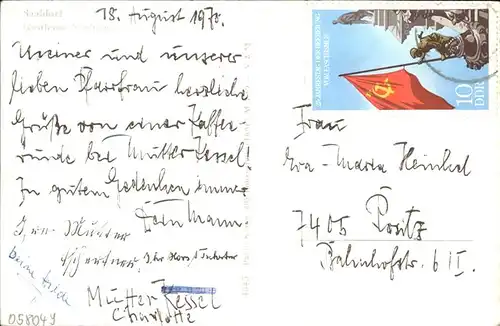 Saaldorf
18. August 1970.
Meiner und unserer
lieben Pfarrfrau herzliche
Grüße von einer Kaffee-
runde bei Mutter Kessel!
In gutem Gedenken immer
Dein Mann.
Mutter
Mutter Kessel
Charlotte
058049
25. JAHRESTAG DER BEFREIUNG
VOM FASCHISMUS
10
DDR
Frau
Eva-Maria Heinkel
7405 Poritz
Bahnhofstr. 6 II.